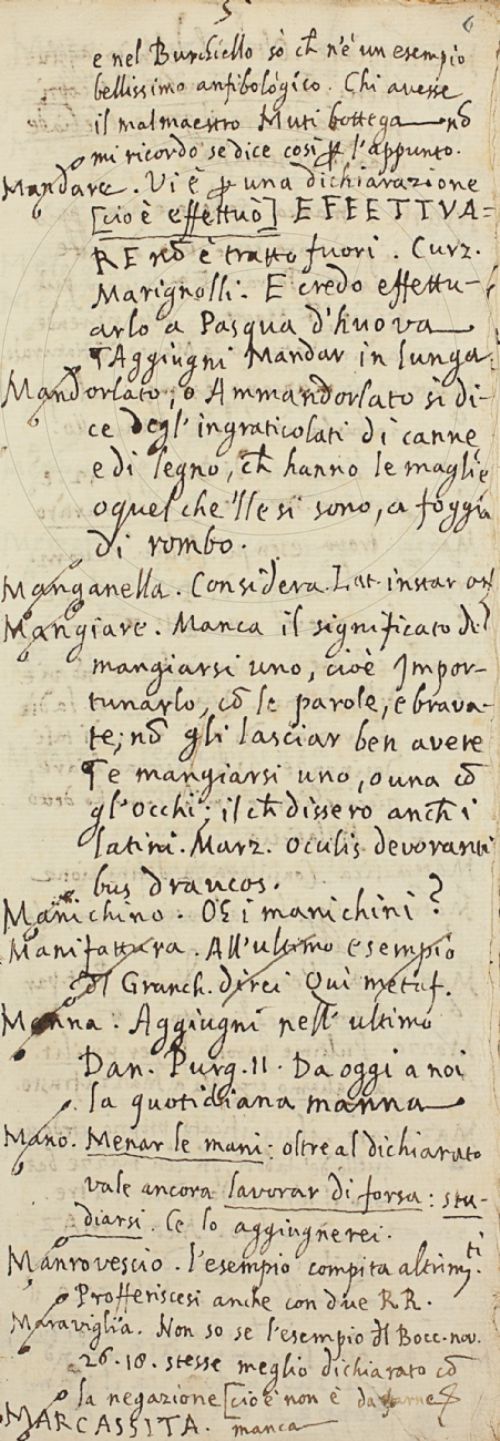 5
6
e nel Burchiello sò ch̄ n'è un esempio
bellissimo anfibológico. Chi avesse
il malmaestro Muti bottega nō
mi ricordo se dice così ꝑ l'appunto.
Mandare. Vi è ꝑ una dichiarazione
[cioè effettuò] EFFETTVA=
RE nō è tratto fuori. Curz.
Marignolli. E credo effettu-
arlo a Pasqua d'huova
Aggiugni Mandar in lunga.
Mandorlato, o Ammandorlato si di-
ce degl' ingraticolati di canne
e di legno, ch̄ hanno le maglie
o quel che 'lle si sono, a foggia
di rombo.
Manganella. Considera. Lat. instar
Mangiare. Manca il significato del
mangiarsi uno, cioè Impor-
tunarlo, cō le parole, e brava-
te; nō gli lasciar ben avere
E mangiarsi uno, o una cō
gl'occhi; il ch̄ dissero anch̄ i
latini. Marz. oculis devoranti
bus draucos.
Manichino. i manichini?
Manifattura. All'ultimo esempio
Granch. direi Qui metaf.
Manna. Aggiugni nell' ultimo
Dan. Purg. 11. Da oggi a noi
la quotidiana manna
Mano. Menar le mani: oltre al dichiarato
vale ancora lavorar di forsa: stu-
diarsi. Ce lo aggiugnerei.
Manrovescio. l'esempio compita altrimti.
Profferiscesi anche con due RR.
Maraviglia. Non so se l'esempio Bocc. nov.
26. 18. stesse meglio dichiarato cō
la negazione [cioè non è da farne
MARCASSITA. manca